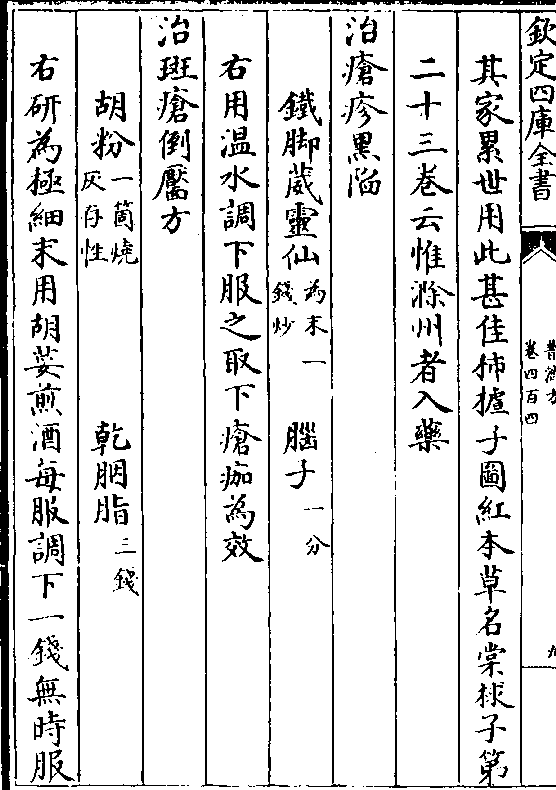 欽定四庫全書
普濟方
卷四百四
九
其家累世用此甚佳柿摣子圓紅本草名棠梂子第
二十三卷云惟滁州者入藥
治瘡疹黑陷
鐵脚葳靈仙為末一錢炒 腦子一分
右用温水調下服之取下瘡痂為效
治斑瘡倒黶方
胡粉一箇燒灰存性 乾胭脂三錢
右研為極細末用胡荽煎酒每服調下一錢無時服